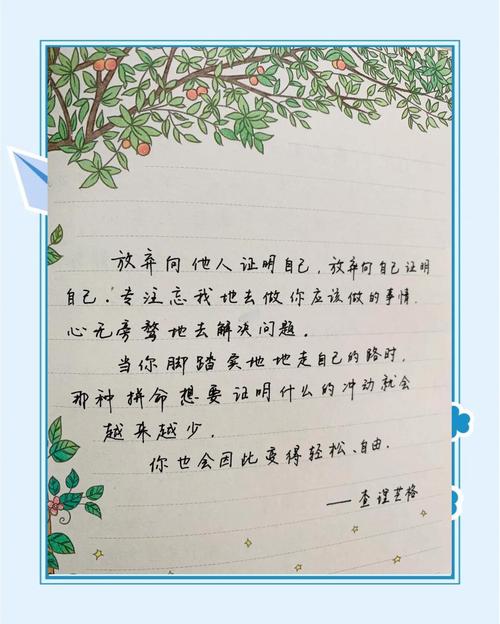 放弃向他人证明自己,放弃向自己证明
自己.专注忘我地去做你应该做的事情.
心无旁骛地去解决问题.
当你脚踏实地地走自己的路时,
那种拼命想要证明什么的冲动就会
越来越少.
你也会因此变得轻松、自由.
——查理芒格